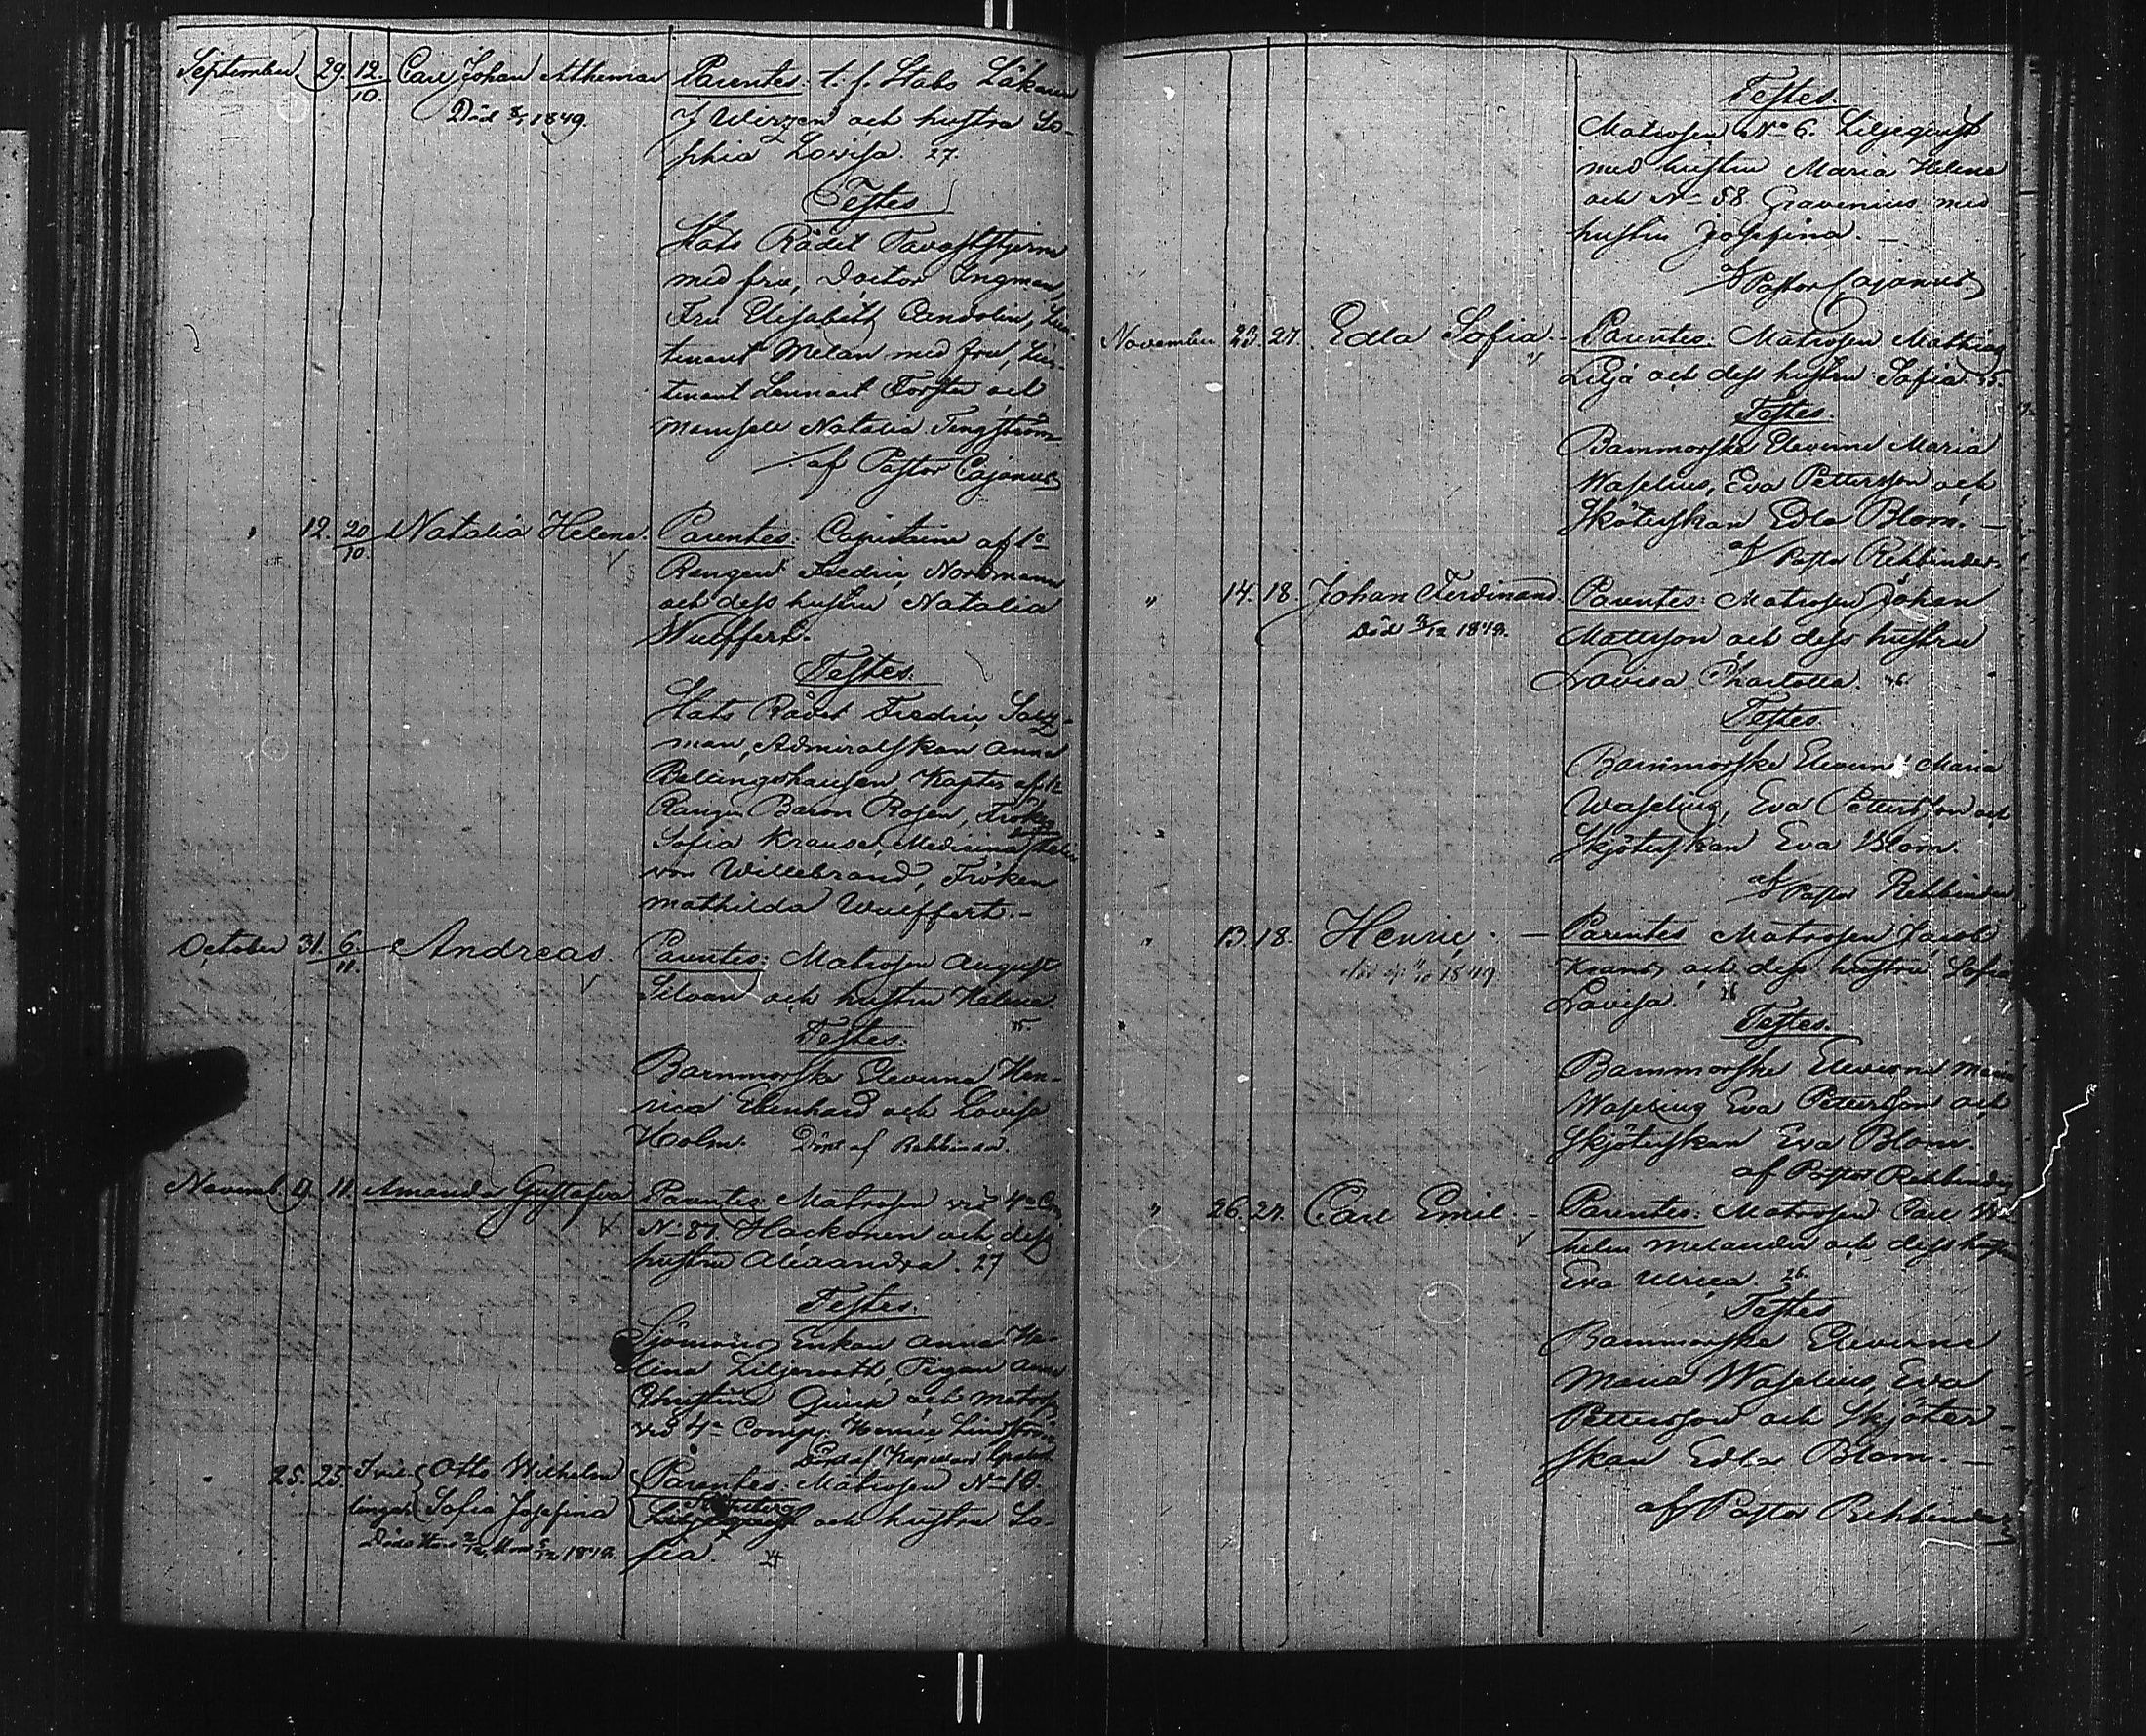 September 29. 12/10. Carl Johan Athemar Parentes: t. f. Stabs Läkaren
Död 1849. J Wirzen och hustru So-
phia Lovisa. 27.
Testes
Stats Rådet Tavaststjerna
med fru, Doctor Ingman,
Fru Elisabeth Candolin, Lieu-
tenant Melan med fru, Lieu-
tenant Lennart Forstén och
Mamsell Natalia Tengström
af Pastor Cajanus
" 12. 20/10. Natalia Helena. Parentes: Capitaine af 1a
Rangen Fredric Nordmann
och dess hustru Natalia
Wulffert.
Testes.
Stats Rådet Fredric Salz-
man, Admiralskan Anna
Bellingshausen, Kapten af 1a
Rangen Baron Rosen, Fröken
Sofia Krause, Medicinæ
von Willebrand, Fröken
Mathilda Wulffert.-
October 31. 6/11. Andreas. Parentes: Matrosen August
Silvan och hustru Helena.
35.
Testes.
Barnmorske Eleverna Hen-
rica Ekenhard och Lovisa
Holm. Döpt af Rehbinder.
Novemb. 9. 11. Amanda Gustafva Parentes Matrosen vid 4de Com
No 87. Hackonen och dess
hustru Alexandra. 27
Testes.
Sjömans Enkan Anna He-
lina Liljeroth, Pigan Anna
Christina Quick och Matros
vid 4de Comp. Henric Lindström
Döpt af Kapellan
" 25. 25. Tvil- { Otto Wilhelm Parentes: Matrosen No 10.
lingar { Sofia Josefina och hustru So-
fia.
Testes.
Matrosen No 6. Liljeqvist
med hustru Maria Helena
och No 58 Gravenius med
hustru Josefina. -
af Pastor Cajanus
November 23. 27. Edla Sofia. - Parentes: Matrosen Mathias
Lilja och dess hustru Sofia. 35.
Testes.
Barnmorske Eleverne Maria
Waselius, Eva Pettersson och
Sköterskan Edla Blom. -
af Pastor Rehbinder
" 14. 18. Johan Ferdinand. Parentes: Matrosen Johan
Död 3/12 1849. Mattsson och dess hustru
Lovisa Charlotta.
Testes
Barnmorske Eleverne Maria
Waselius, Eva Pettersson och
Skjöterskan Eva Blom.
af Pastor Rehbinder
" 13. 18. Henric. - Parentes Matrosen Jacob
1849 Krantz och dess hustru Sofia
Lovisa. 26
Testes.
Barnmorske Eleverne Maria
Waselius Eva Pettersson och
Skjöterskan Eva Blom.
af Pastor Rehbinder
" 26. 27. Carl Emil. - Parentes: Matrosen Carl Wil-
helm Melander och dess hustru
Eva Ulrica. 26.
Testes
Barnmorske Eleverne
Maria Waselius, Eva
Pettersson och Skjöter-
skan Edla Blom. -
af Pastor Rehbinder